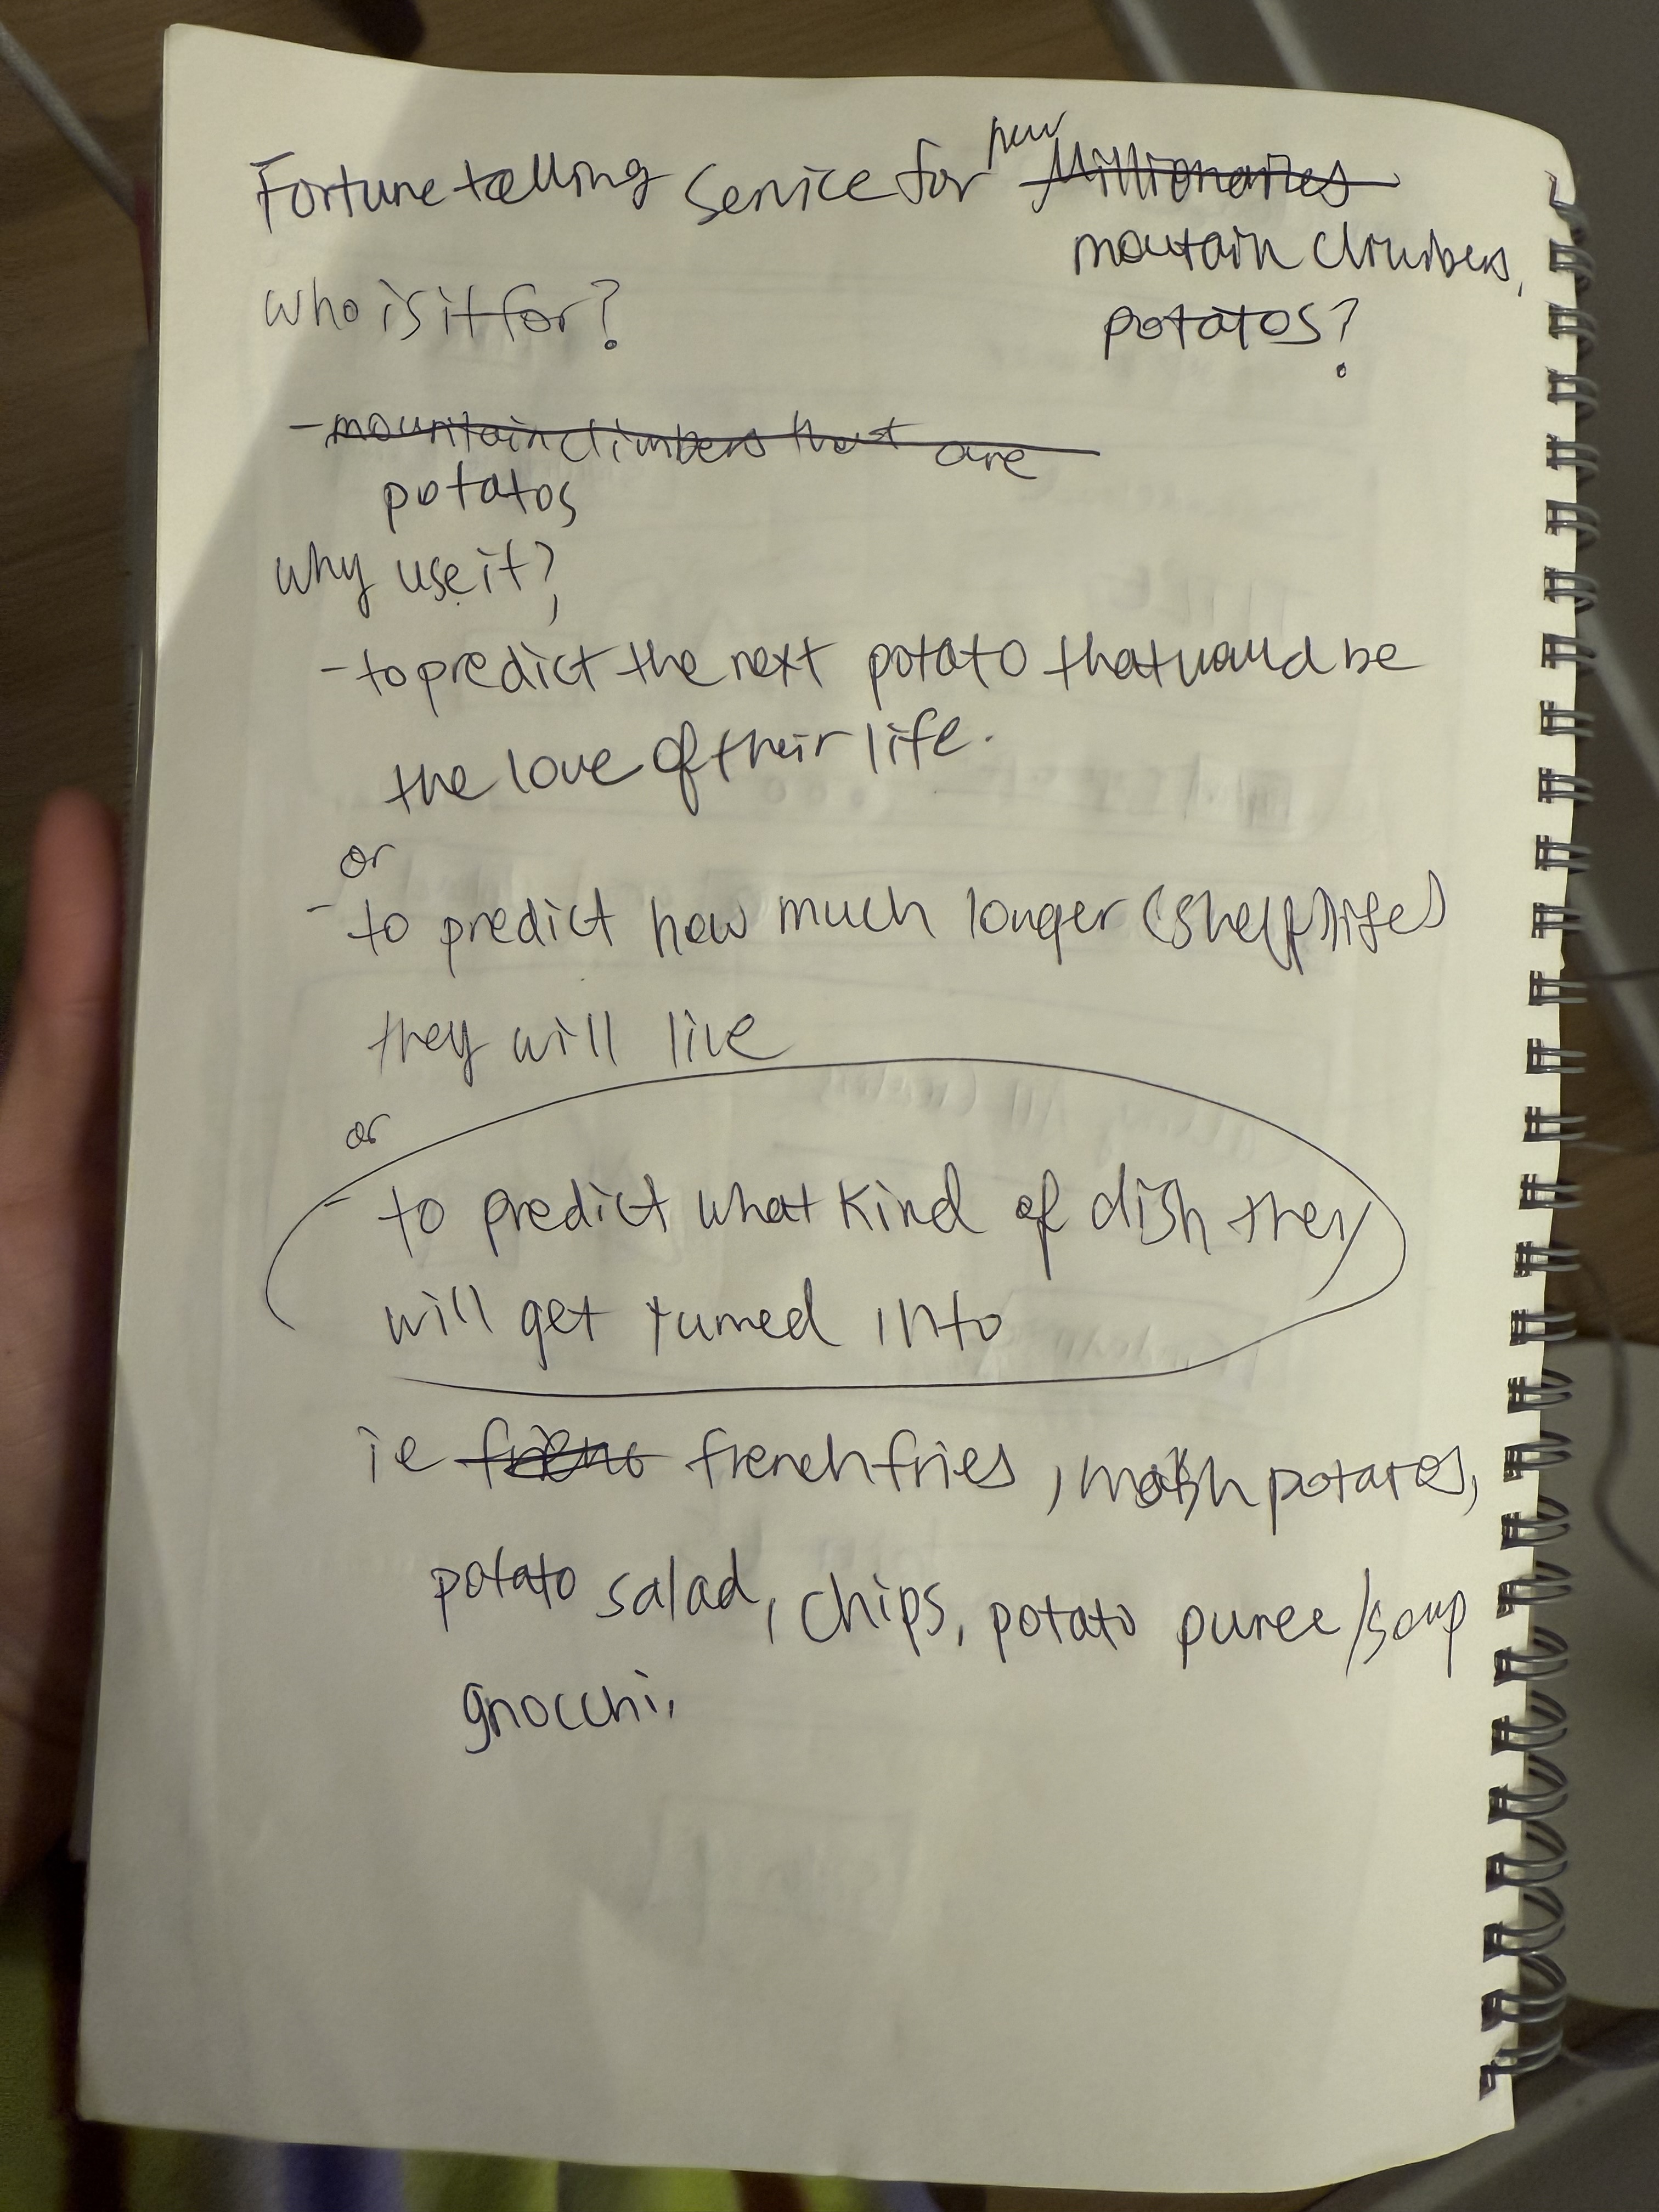 Fortune telling Service for new Millionaries
moutain climbers,
who is it for?
potatos?
- mountain climbers that are
potatos
why use it?
- to predict the next potato that would be
the love of their life.
or
- to predict how much longer (shelf life)
they will live
or
- to predict what kind of dish they
will get turned into
ie french fries, mash potatos,
potato salad, chips, potato puree/soup
gnocchi,